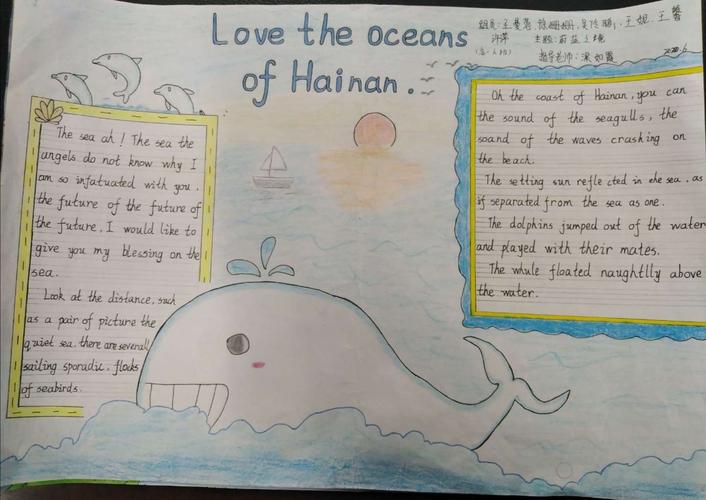 Love the oceans
of Hainan.
组员:
主题:
指导老师:
The sea ah! The sea the
angels do not know why I
am so infatuated with you.
the future of the future of
the future, I would like to
give you my blessing on the
sea.
Look at the distance, such
as a pair of picture the
quiet sea. there are severall
sailing sporadic. flocks
of seabirds.
On the coast of Hainan, you can
the sound of the seagulls, the
soand of the waves crashing on
the beach.
The setting sun refle cted in the sea. as
if separated from the sea as one.
The dolphins jumped out of the water
and played with their mates.
The whule floated naughtlly above
the water.